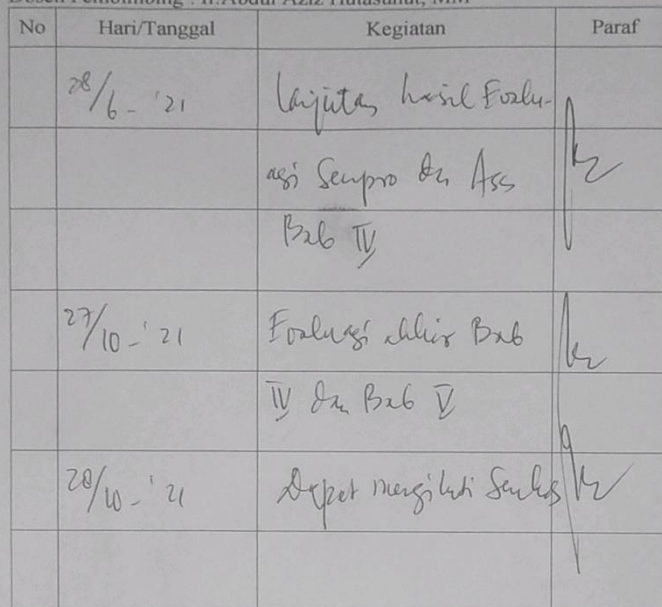 Dosen Pembimbing : Ir.Abdul Aziz Hutasuhut, MM
No Hari/Tanggal Kegiatan Paraf
28/6-'21 Lanjutan hasil Evalu-
asi Sempro dan Ass
Bab IV
27/10-'21 Evaluasi akhir Bab
IV dan Bab V
28/10-'21 Dapat mengikuti Semhas